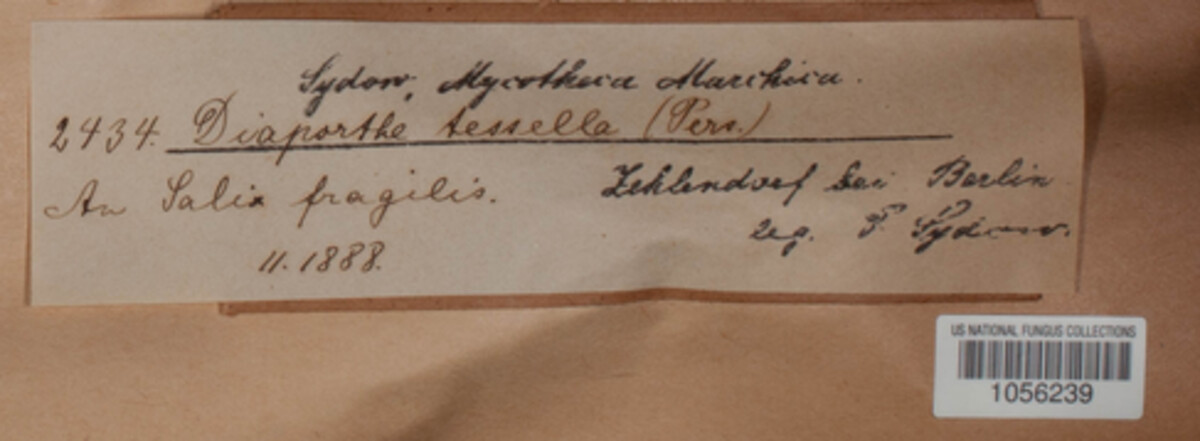 Sydow, Mycotheca Marchica.
2434. Diaporthe tessella (Pers.)
An Salix fragilis.
Zehlendorf bei Berlin
11. 1888.
leg. P. Sydow.
US NATIONAL FUNGUS COLLECTIONS
1056239